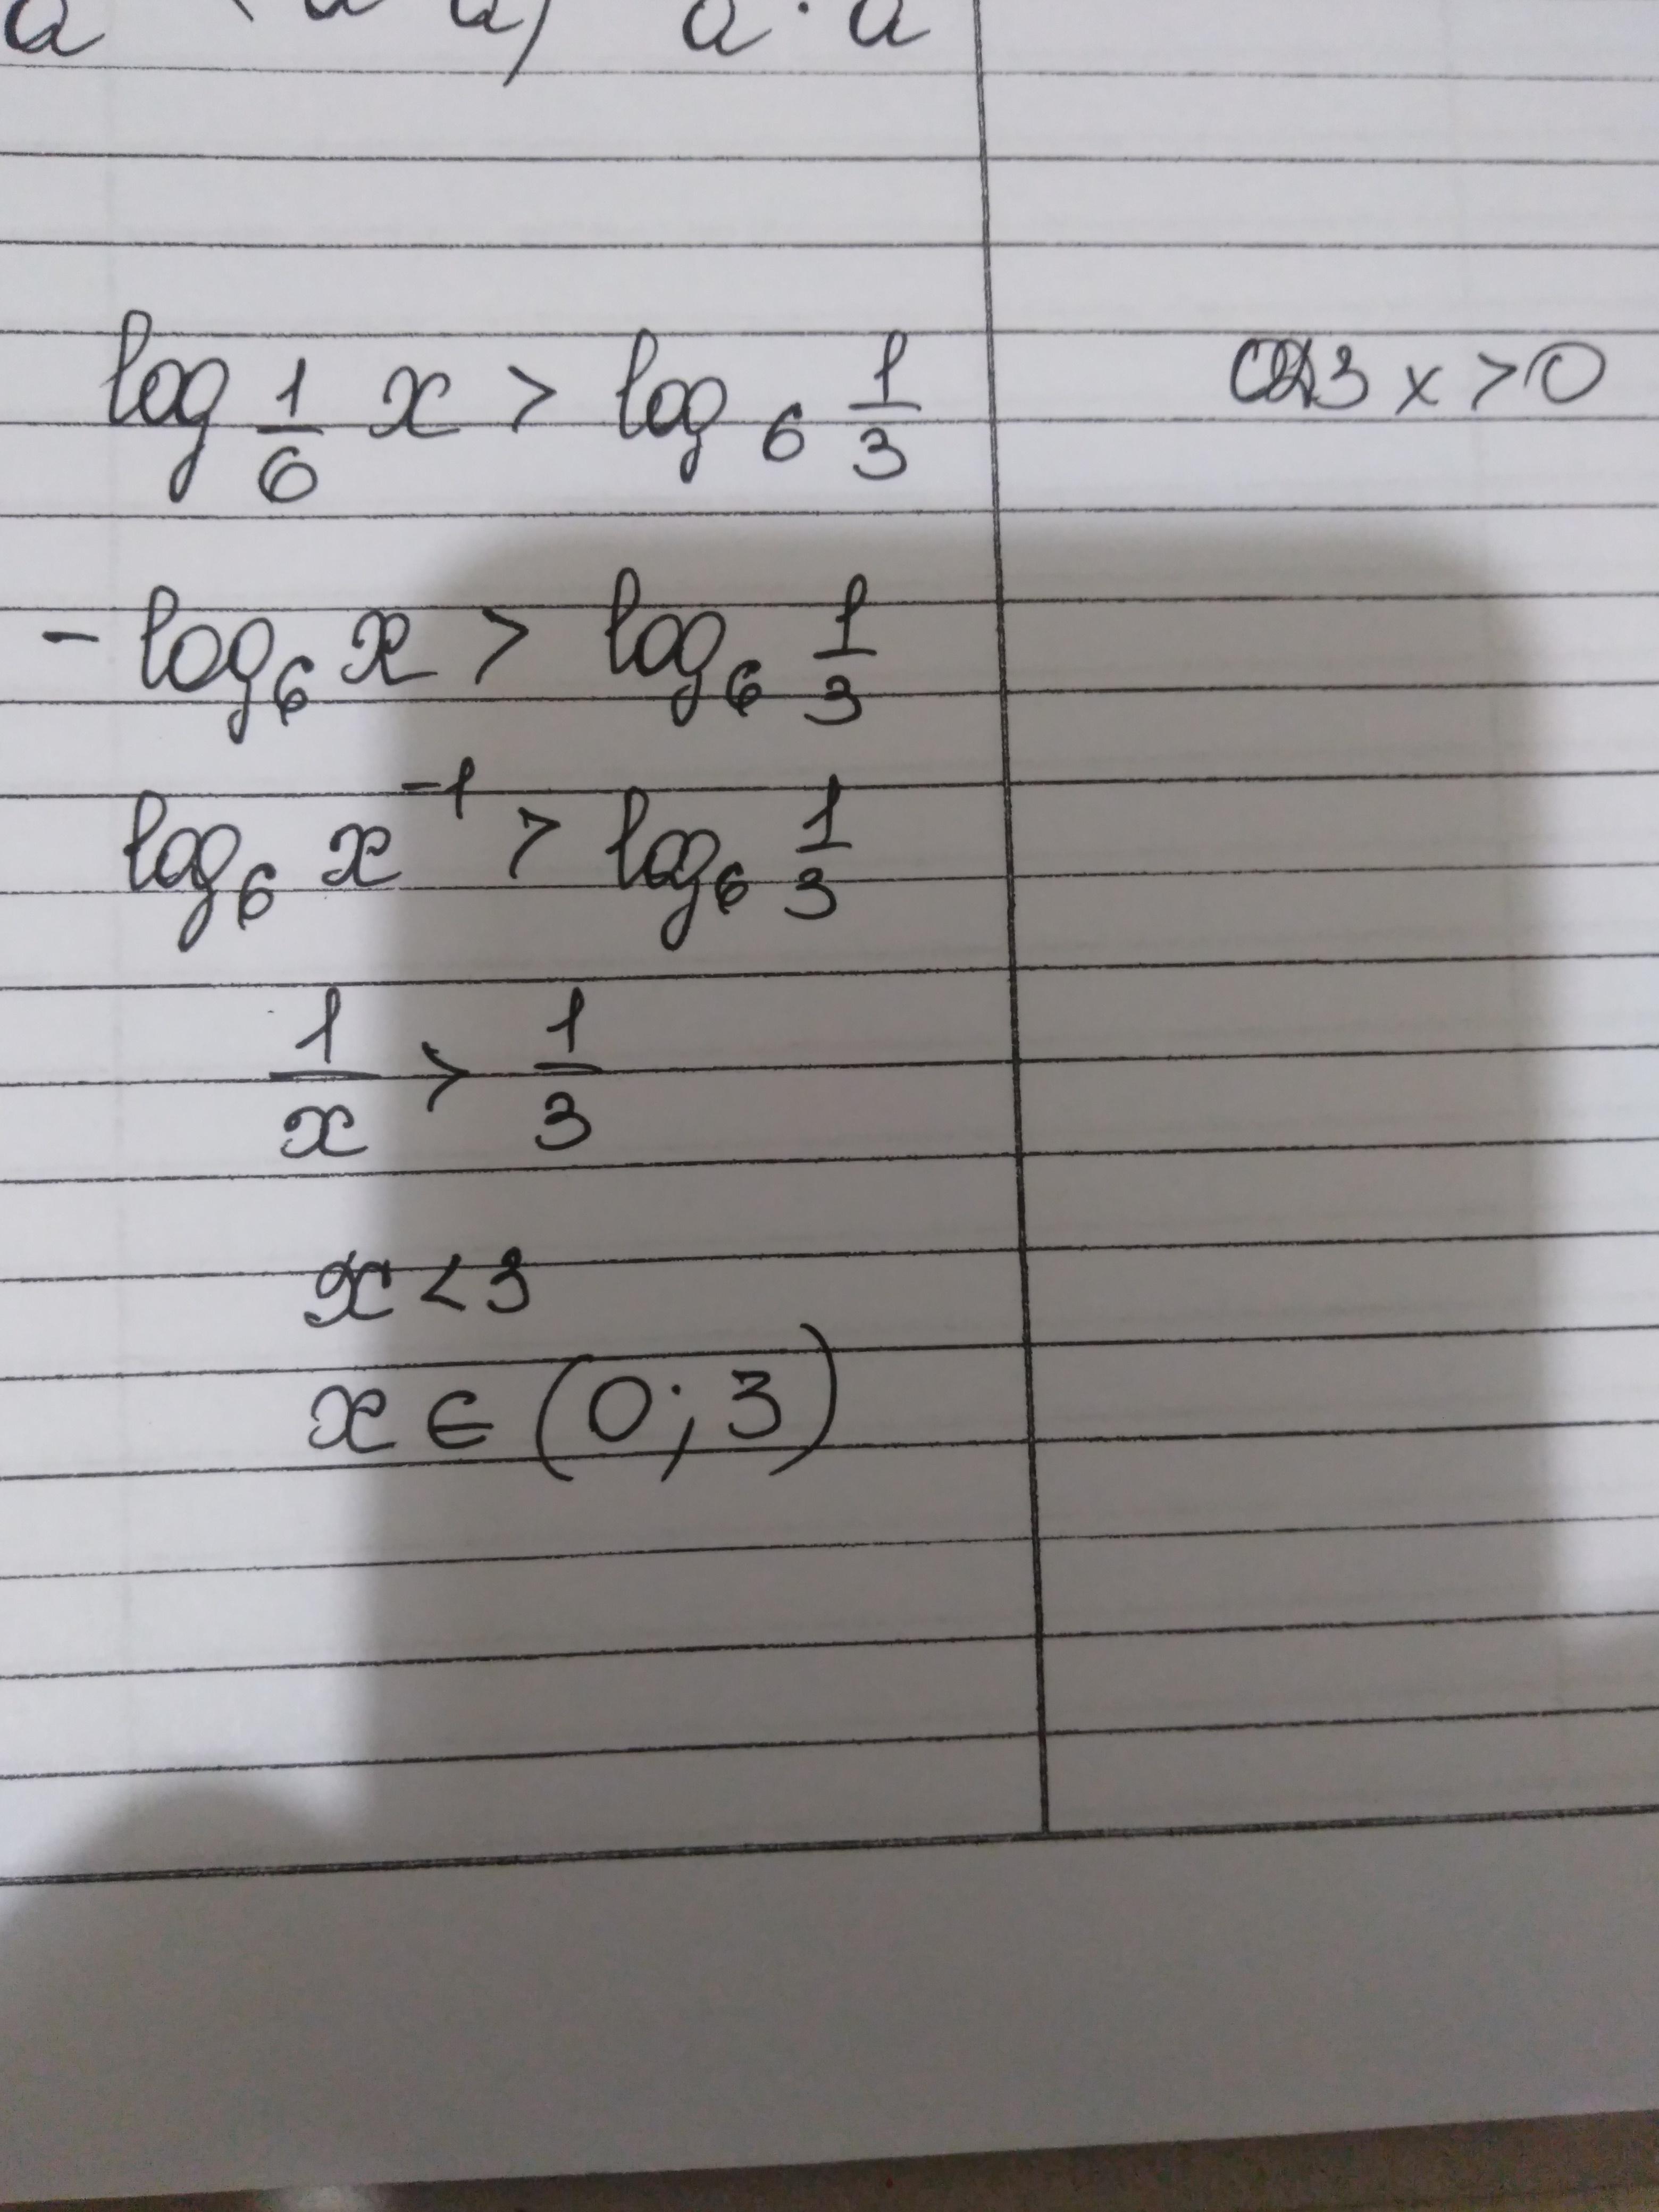 log 1/6 x > log 6 1/3 ОДЗ x > 0
- log₆ x > log₆ 1/3
log₆ x⁻¹ > log₆ 1/3
1/x > 1/3
x < 3
x ∈ (0; 3)